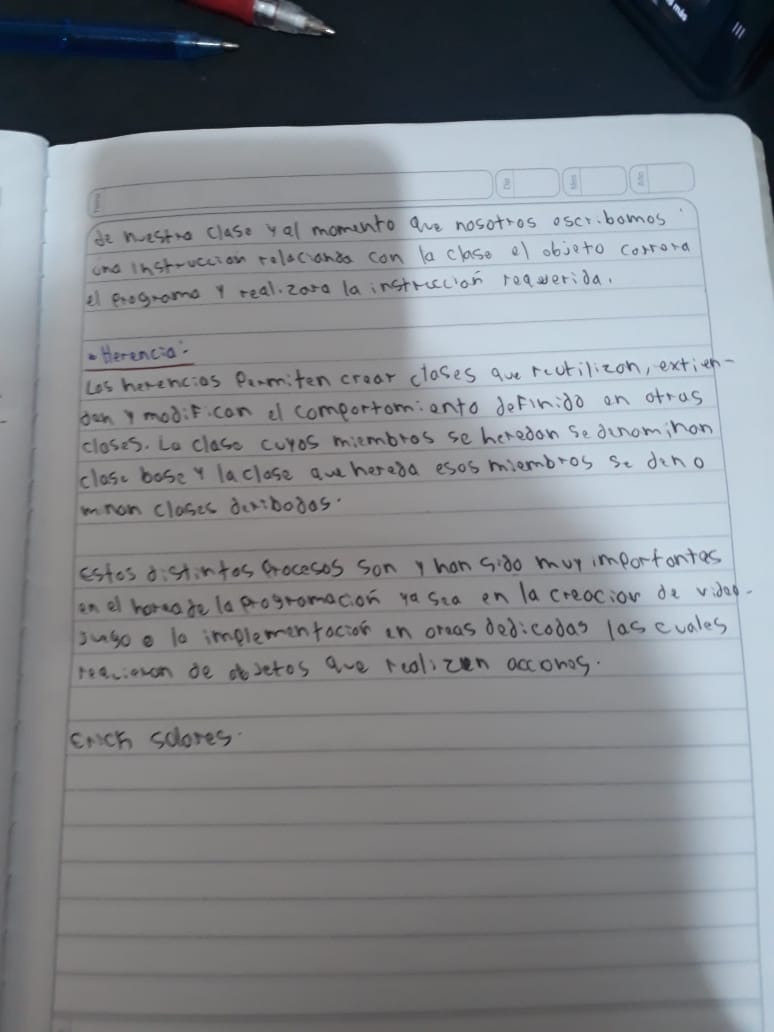 de nuestra clase y al momento que nosotros escribamos
una instrucción relacionada con la clase el objeto correra
el programa y realizara la instrucción requerida.
• Herencia:
Las herencias permiten crear clases que reutilizan, extien-
dan y modifican el comportamiento definido en otras
clases. La clase cuyos miembros se heredan se denominan
clase base y la clase que hereda esos miembros se deno
minan clases deribadas.
Estos distintos procesos son y han sido muy importantes
en el de la programación ya sea en la creacion de video-
juego o la implementación en areas dedicadas las cuales
de objetos que realizen acciones.
Erick
Dia
Mes
Año